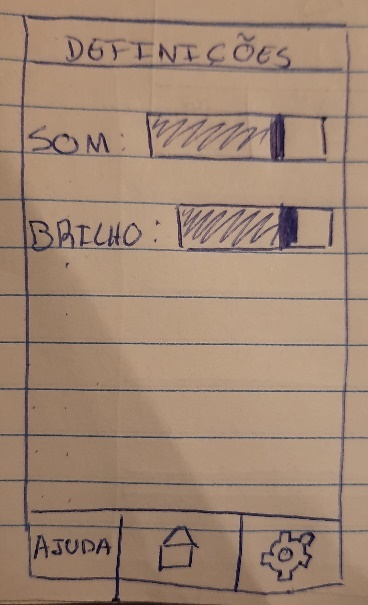 DEFINIÇÕES
SOM:
BRILHO:
AJUDA